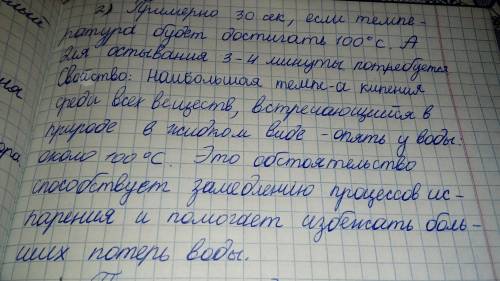 2) Примерно 30 сек, если темпе-
ратура будет достигать 100°С. А
для остывания 3-4 минуты потребуется
Свойство: Наибольшая темпе-а кипения
среди всех веществ, встречающийся в
природе в жидком виде - опять у воды:
около 100°С. Это обстоятельство
способствует замедлению процессов ис-
парения и помогает избежать боль-
ших потерь воды.